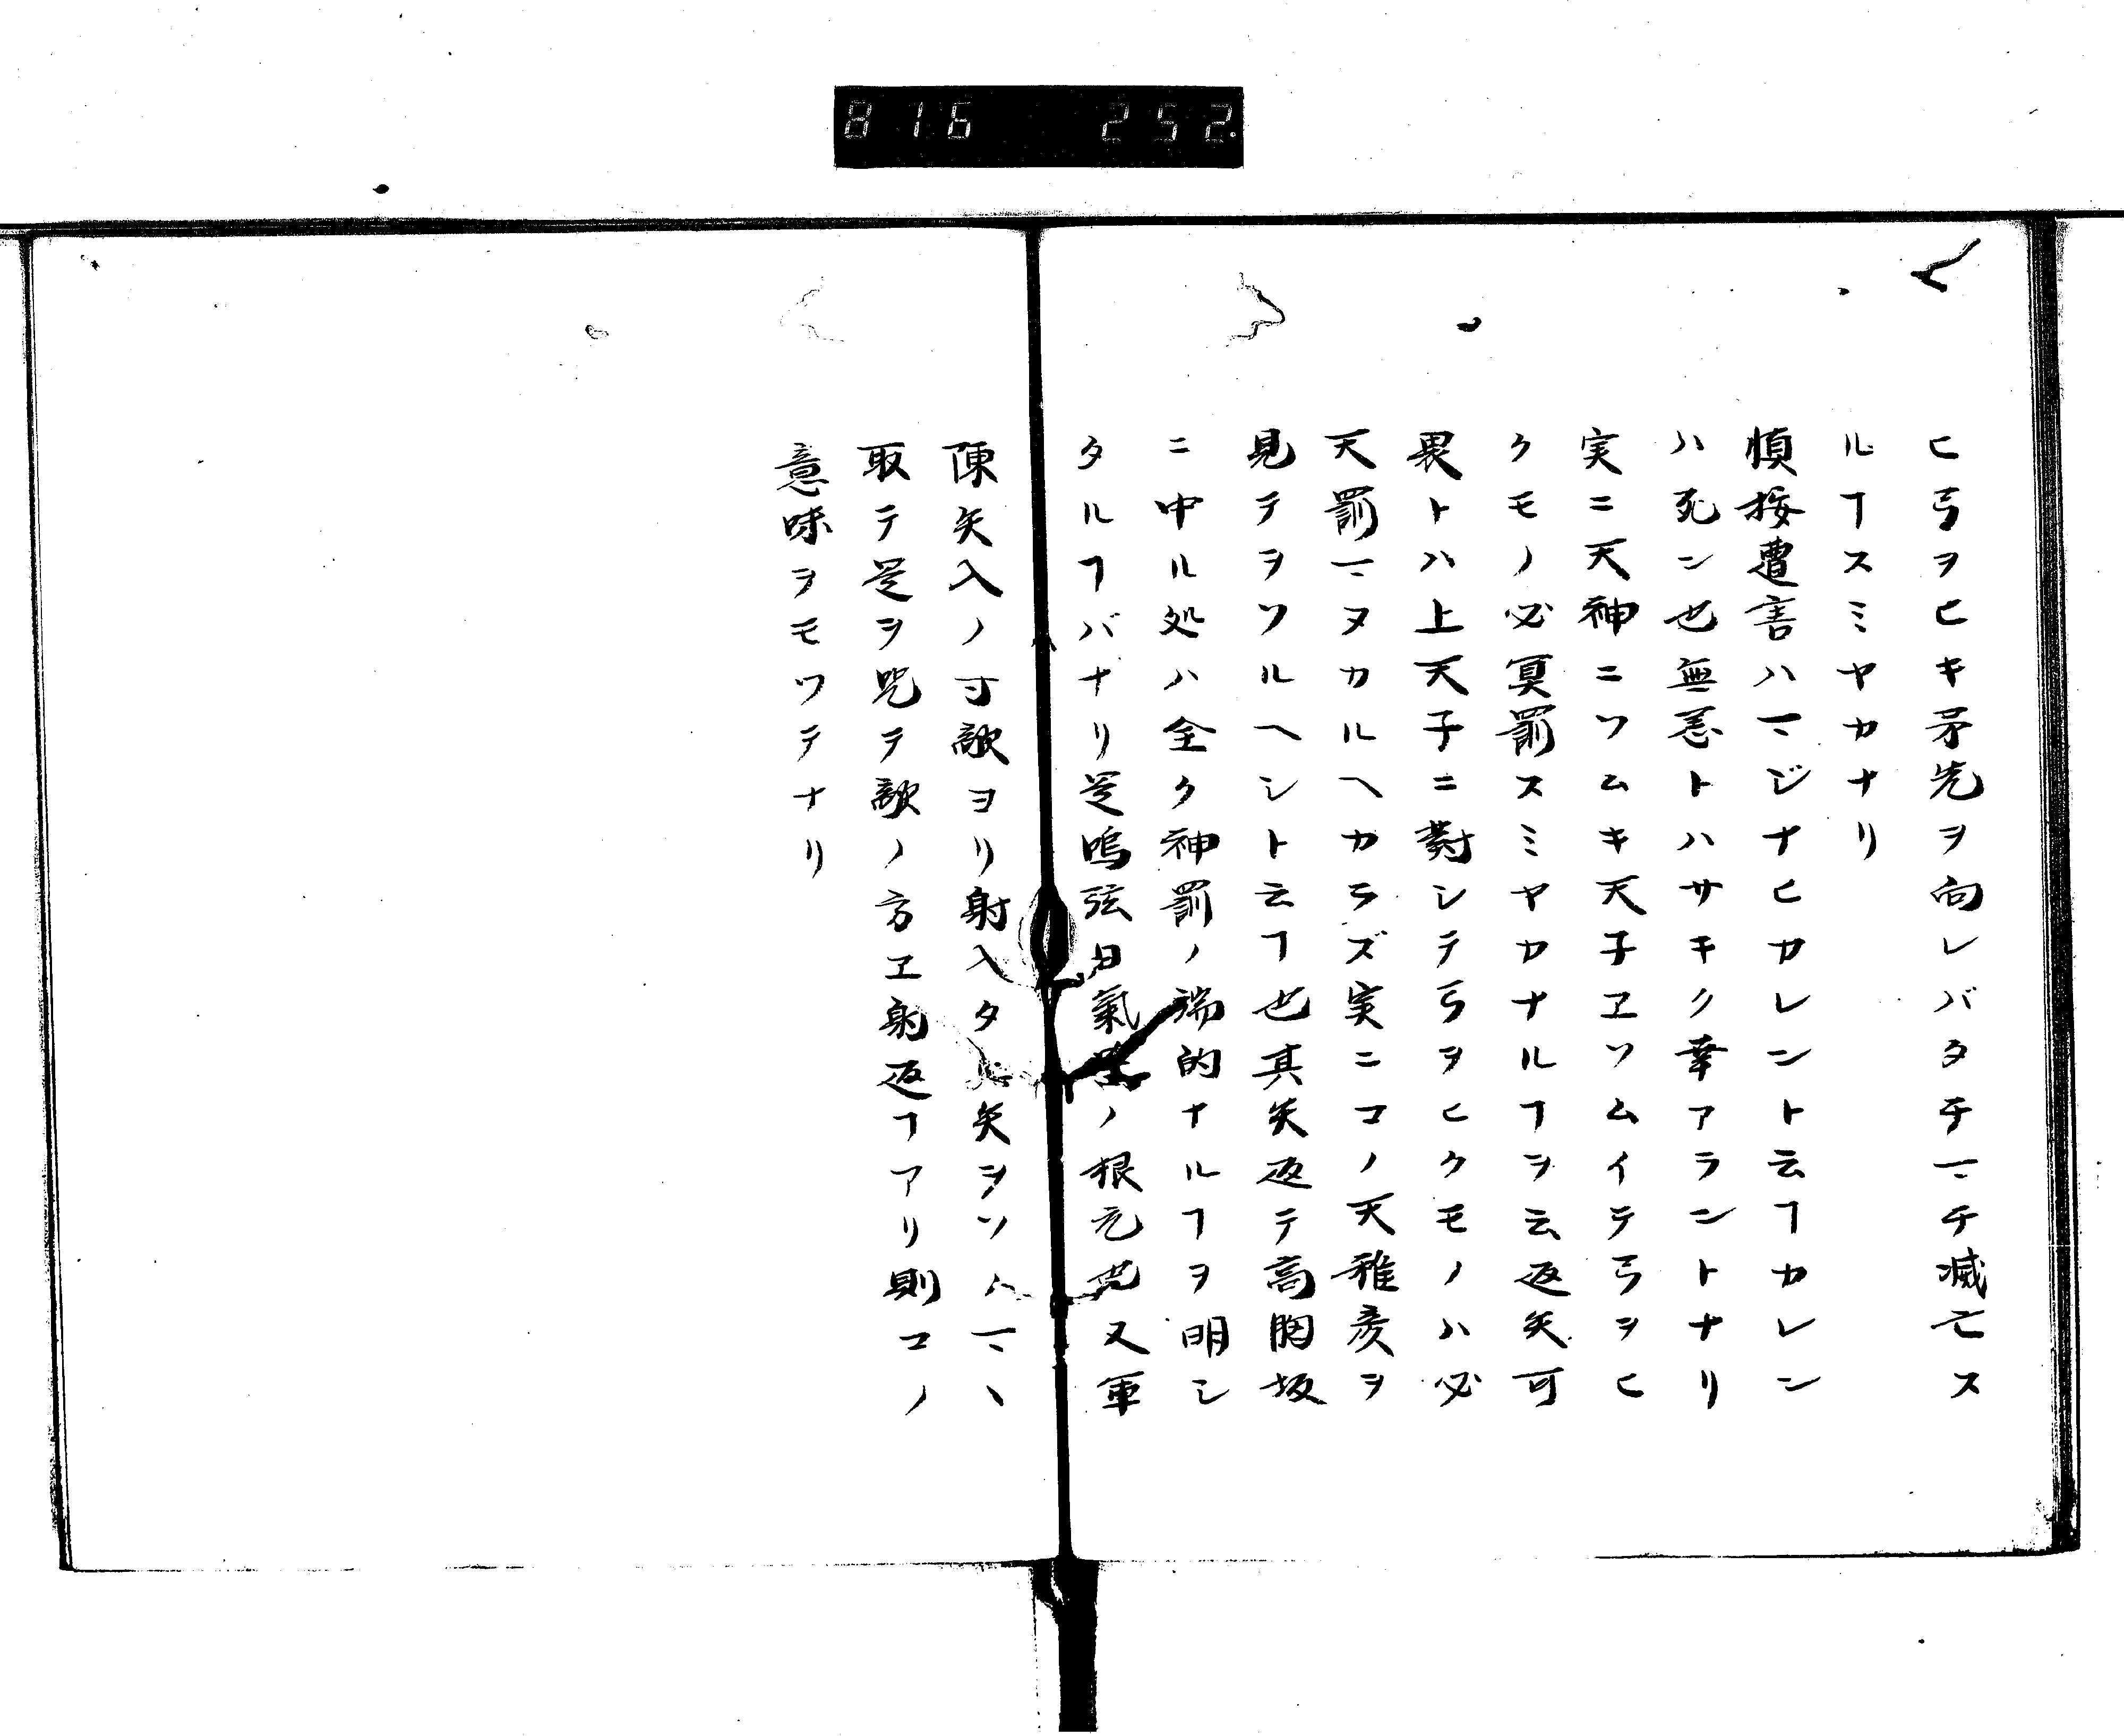 816 252.
ヒ弓ヲヒキ矛先ヲ向レバタチマチ滅亡ス
ルヿスミヤカナリ
慎按遭害ハマジナヒカレント云フカレン
ハ死ン也無恙トハサキク幸アラントナリ
実ニ天神ニソムキ天子ヱソムイテ弓ヲヒ
クモノ必冥罰スミヤカナルヿヲ云返矢可
畏トハ上天子ニ對シテ弓ヲヒクモノハ必
天罰マヌカルヘカラズ実ニコノ天稚彦ヲ
見テヲソルヘシト云フ也其矢返テ高胸坂
ニ中ル処ハ全ク神罰ノ端的ナルヿヲ明シ
タルヿバナリ是鳴弦
氣
ノ根元也又軍
陳矢入ノ寸敵ヨリ射入タル矢ヲソノマヽ
取テ是ヲ咒テ敵ノ方ヱ射返ヿアリ則コノ
意味ヲモツテナリ